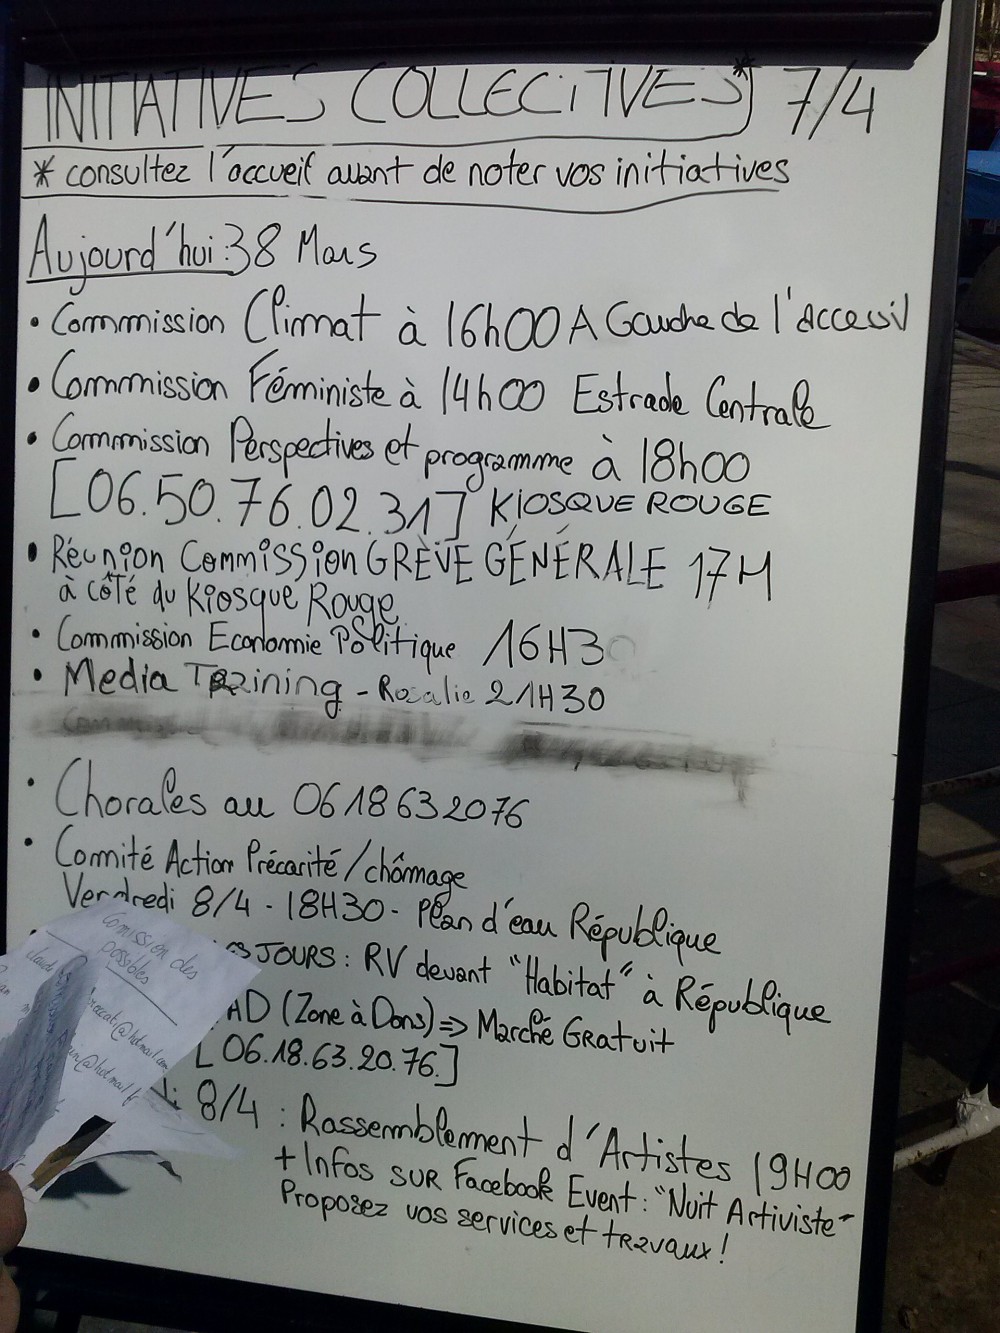 INITIATIVES COLLECTIVES* 7/4
* consultez l'accueil avant de noter vos initiatives
Aujourd'hui : 38 Mars
• Commission Climat à 16h00 A Gauche de l'acceuil
• Commission Féministe à 14h00 Estrade Centrale
• Commission Perspectives et programme à 18h00
[06.50.76.02.31] KIOSQUE ROUGE
• Réunion Commission GRÈVE GÉNÉRALE 17H
à côté du Kiosque Rouge
• Commission Economie Politique 16H30
• Media Training - Rosalie 21H30
• Chorales au 0618632076
• Comité Action Précarité/chômage
Vendredi 8/4 - 18H30 - Plan d'eau République
JOURS : RV devant "Habitat" à République
AD (Zone à Dons) => Marché Gratuit
[06.18.63.20.76.]
di 8/4 : Rassemblement d'Artistes 19H00
+ Infos SUR Facebook Event : "Nuit Artiviste"
Proposez vos services et travaux !
Comission des
possibles
@hotmail.com
@hotmail.f